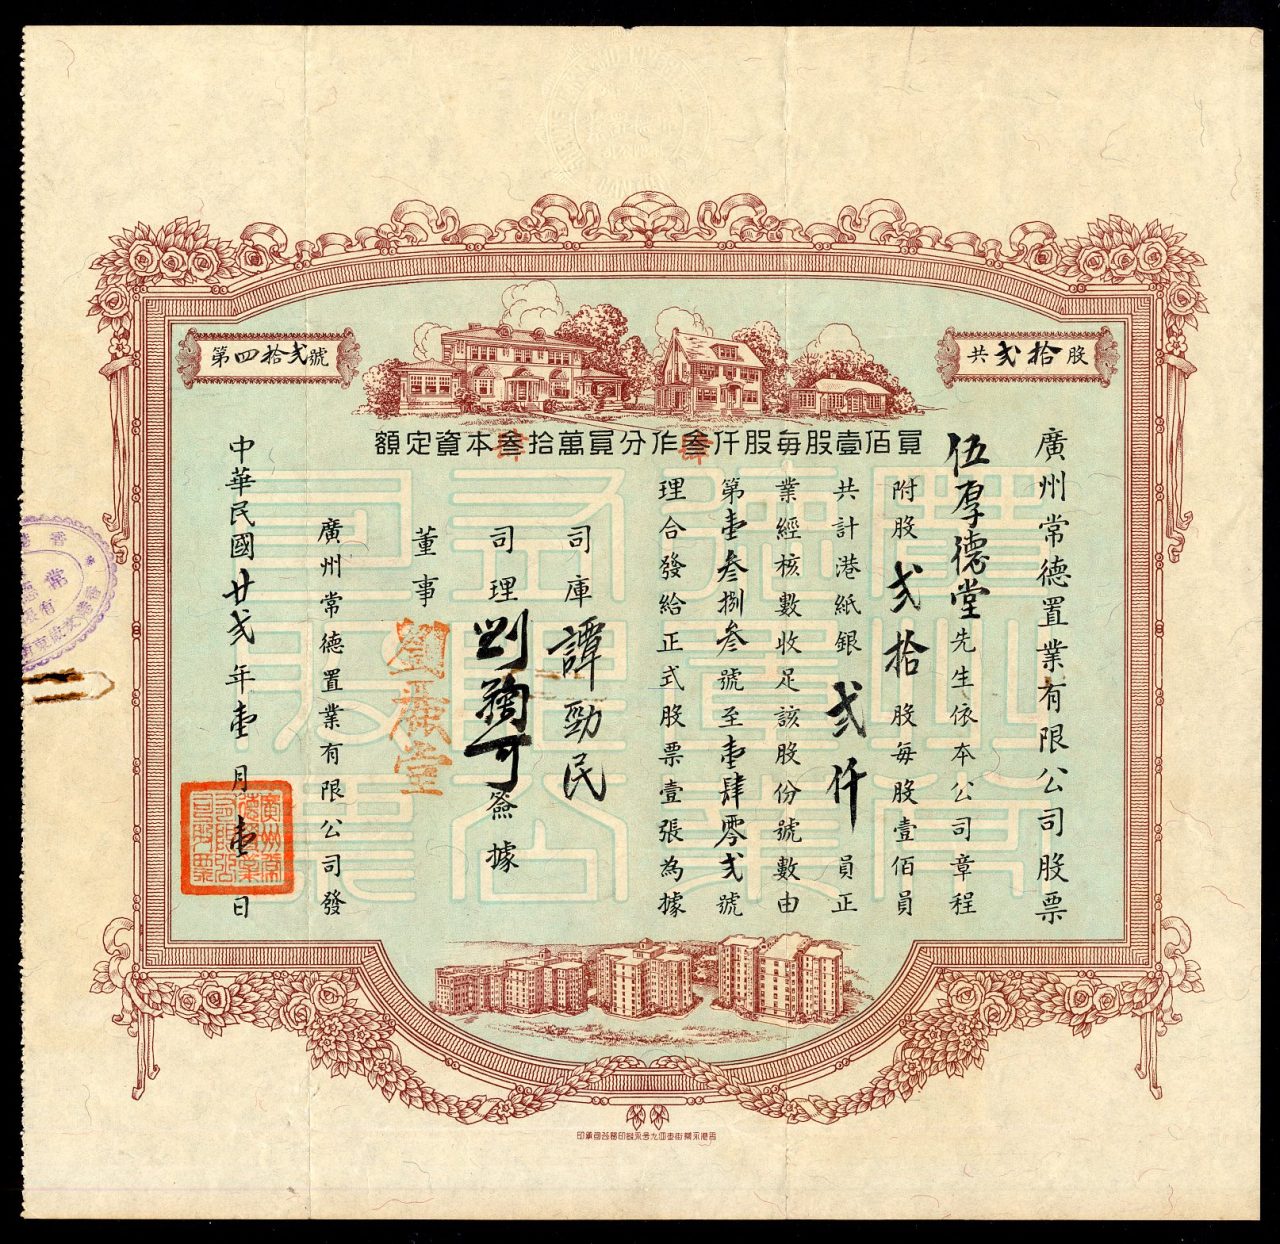 共弍拾股
第四拾弍號
額定資本叁肆拾萬員分作叁肆仟股每股壹佰員
廣州常德置業有限公司股票
伍厚德堂先生依本公司章程
附股弍拾股每股壹佰員
共計港紙銀弍仟員正
業經核數收足該股份號數由
第壹叁捌叁號至壹肆零弍號
理合發給正式股票壹張為據
司庫譚勁民
司理劉鞠可簽據
董事劉蔭堂
廣州常德置業有限公司發
中華民國廿弍年壹月壹日
廣州常德置業有限公司股票